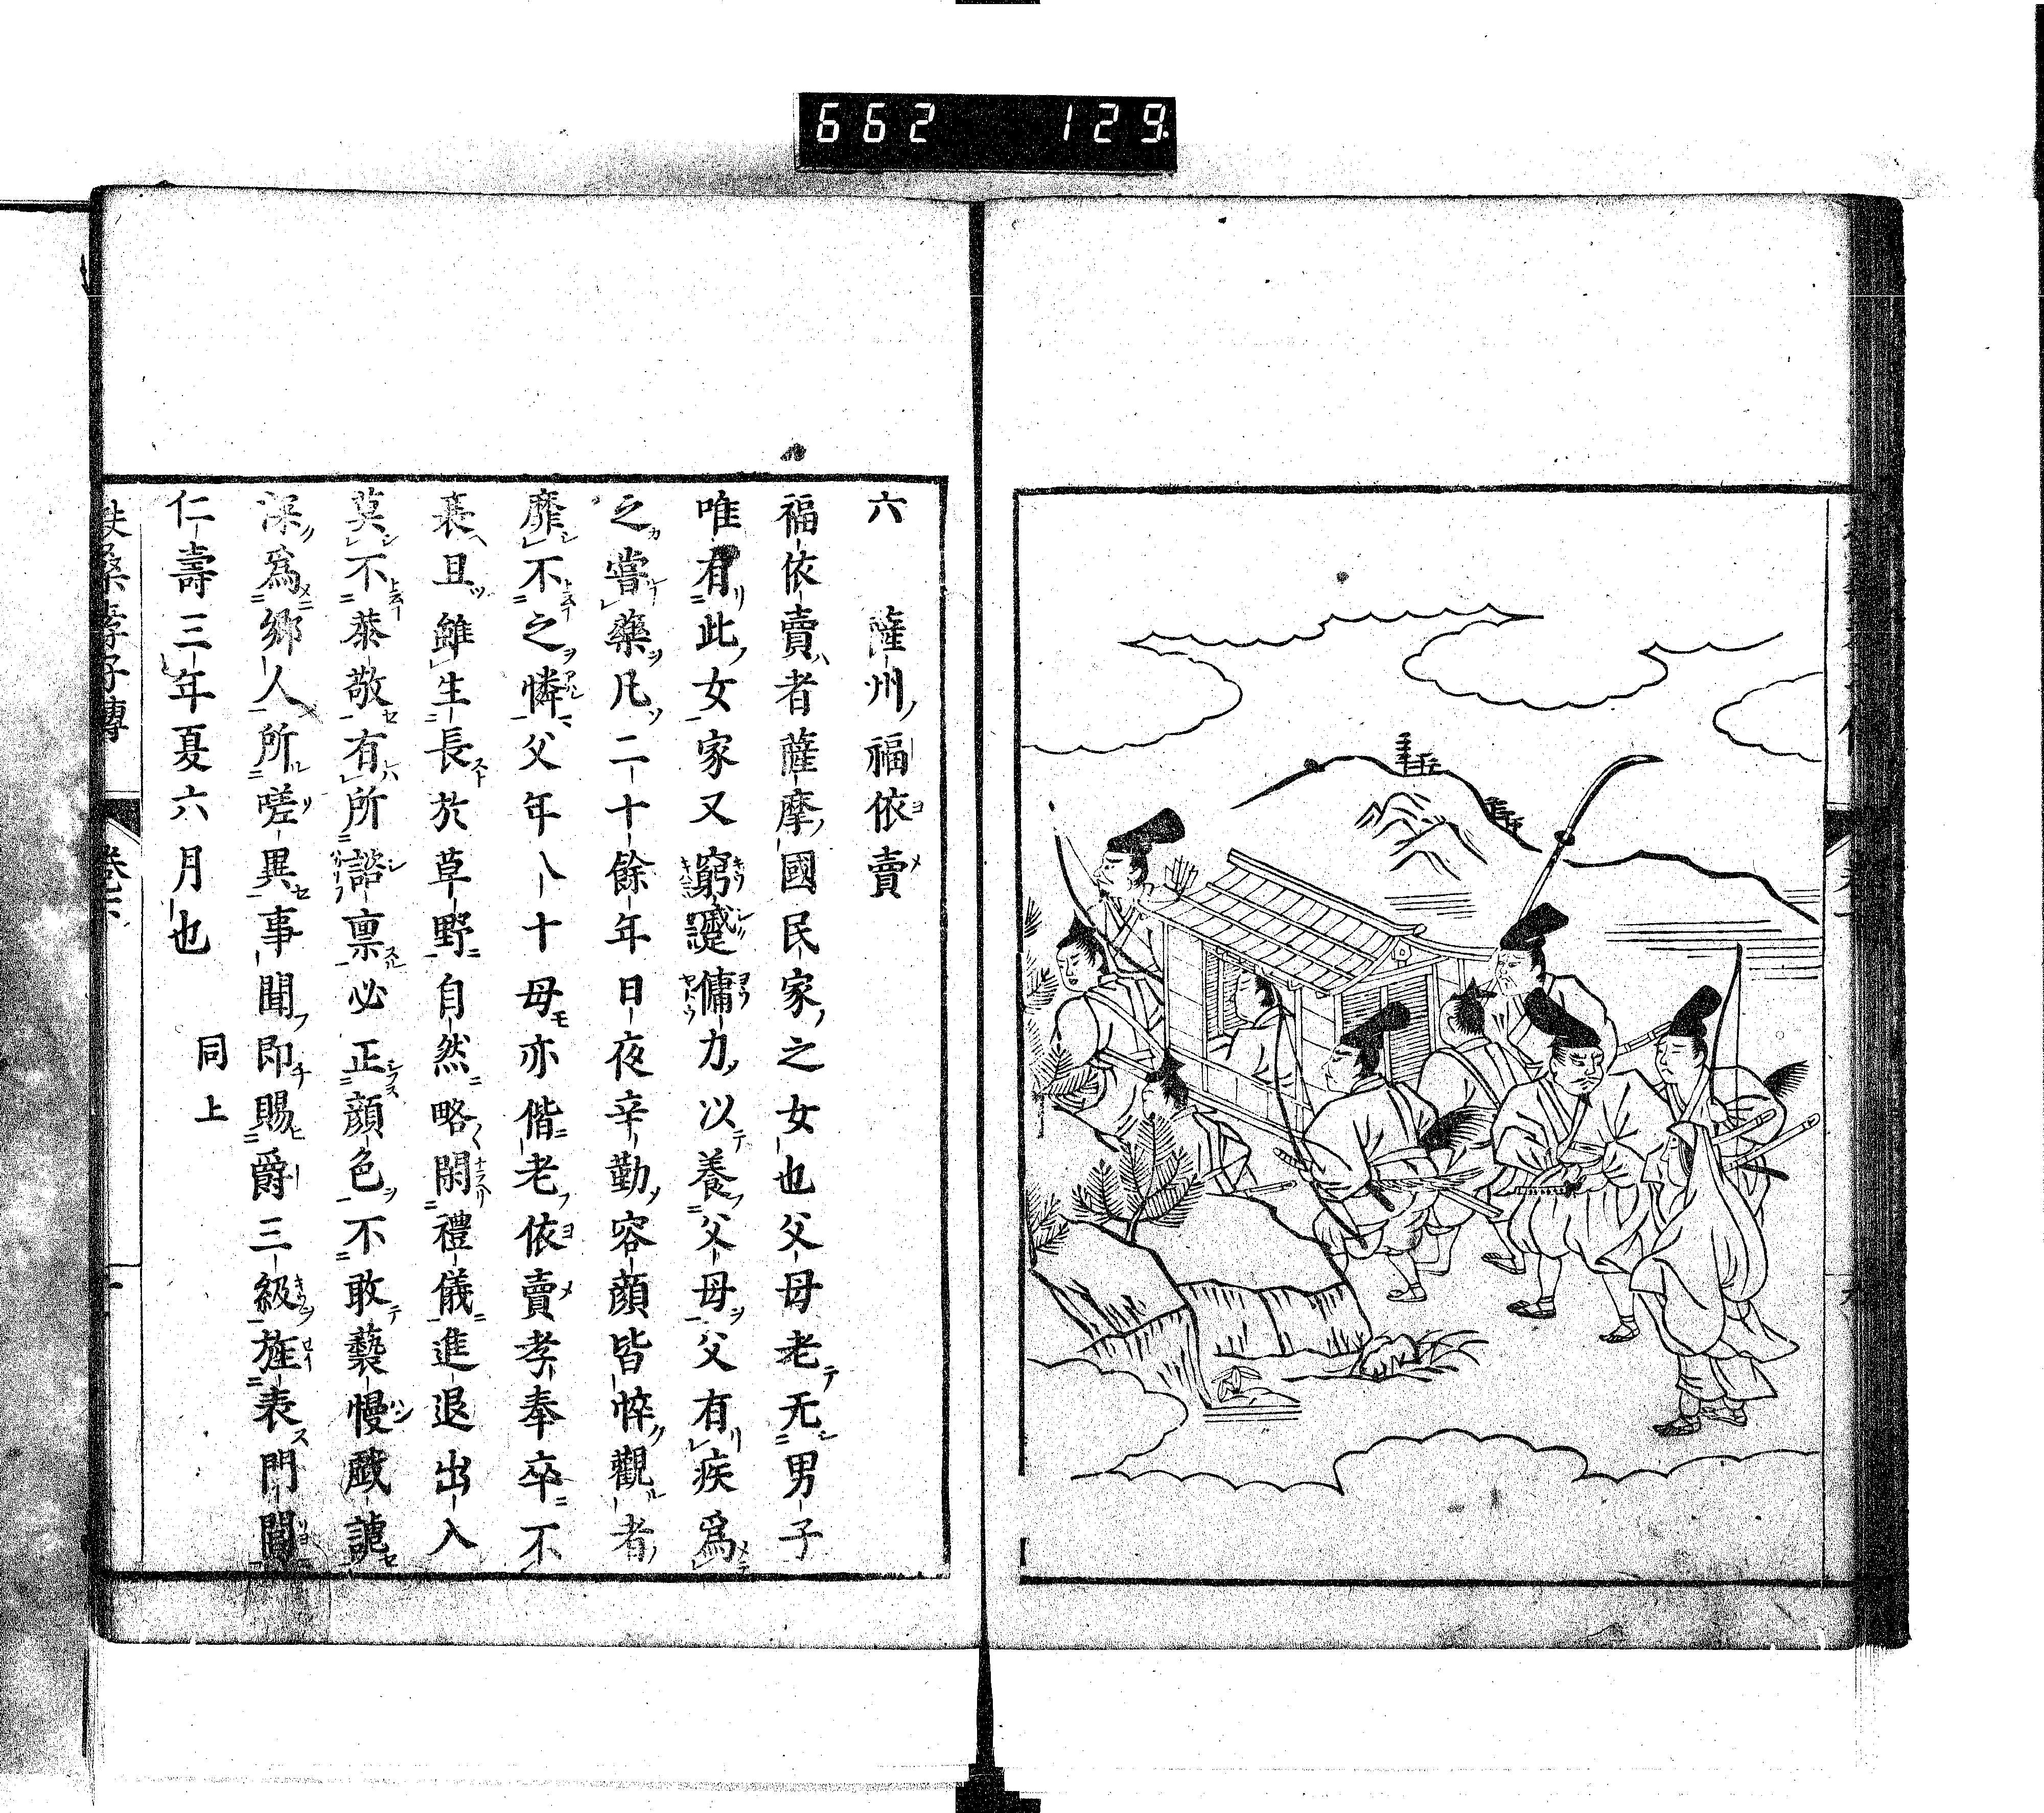 662 129
六 薩州福依賣
福依賣者薩摩國民家之女也父母老无男子
唯有此女家又窮蹙傭力以養父母父有疾爲
之嘗藥凡二十餘年日夜辛勤容顔皆悴觀者
靡不之憐父年八十母亦偕老依賣孝奉卒不
衰且雖生長於草野自然略閑禮儀進退出入
莫不恭敬有所諮禀必正顔色不敢褻慢戲謔
深爲郷人所嗟異事聞即賜爵三級旌表門閭
仁壽三年夏六月也 同上
扶桑孝子傳 卷下